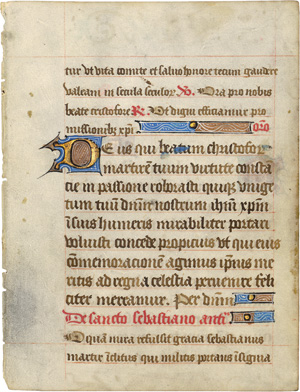 tur ut vita comite et salvo honore tecum gaudere
valeam in secula seculor V. Ora pro nobis
beate cristofore R. Ut digni efficiamur pro
missionibz xpi oro
Deus qui beatum christofor
martirem tuum virtute consta
cie in passione roborasti quiqz unige
tum tuum dnm nostrum ihm xpm
in suis humeris mirabiliter portari
voluisti concede propicius ut qui eius
comemoracionem agimus ipius me
ritis ad regna celestia pervenire feli
citer mereamur. Per dnm
De sancto sebastiano ante
O quam mira refulsit gracia sebastianus
martir inclitus qui militis portans insignia